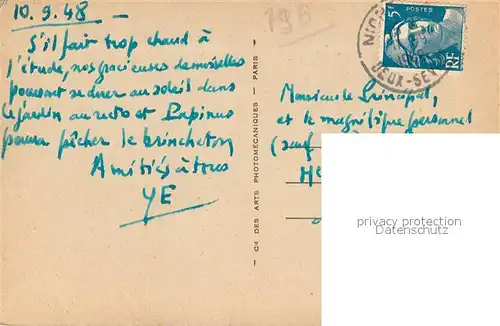 10.9.48
S'il fait trop chaud à
l'étude, nos gracieuses demoiselles
pourront se dorer au soleil dans
le jardin au recto et Lapinus
pourra pêcher le brincheton
Amitiés à tous
YE
Cie DES ARTS PHOTOMÉCANIQUES - PARIS
19B
5F
POSTES
RF
NIORT
DEUX-SÈV
Monsieur le Principal,
et le magnifique personnel
(sauf
privacy protection
Datenschutz